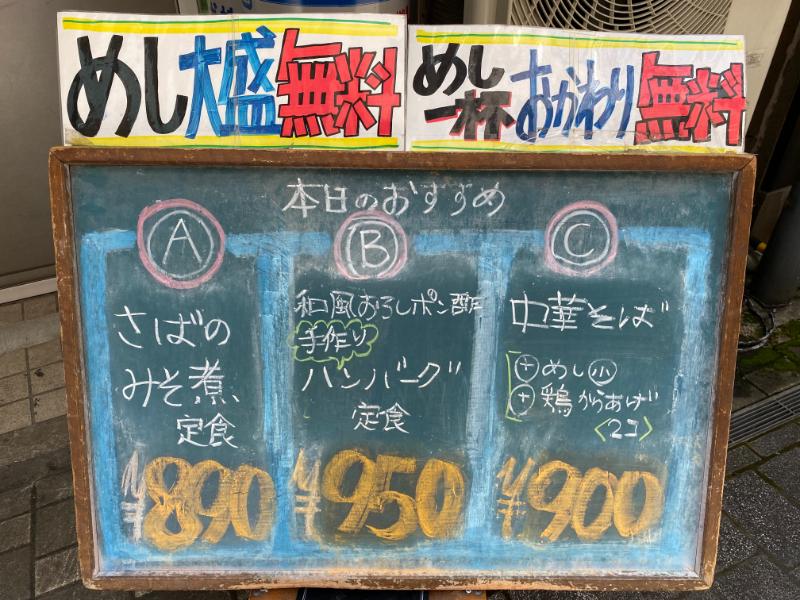 めし大盛無料
めし一杯おかわり無料
本日のおすすめ
A
さばの
みそ煮
定食
¥890
B
和風おろしポン酢
手作り
ハンバーグ
定食
¥950
C
中華そば
+めし小
+鶏からあげ
<2コ>
¥900